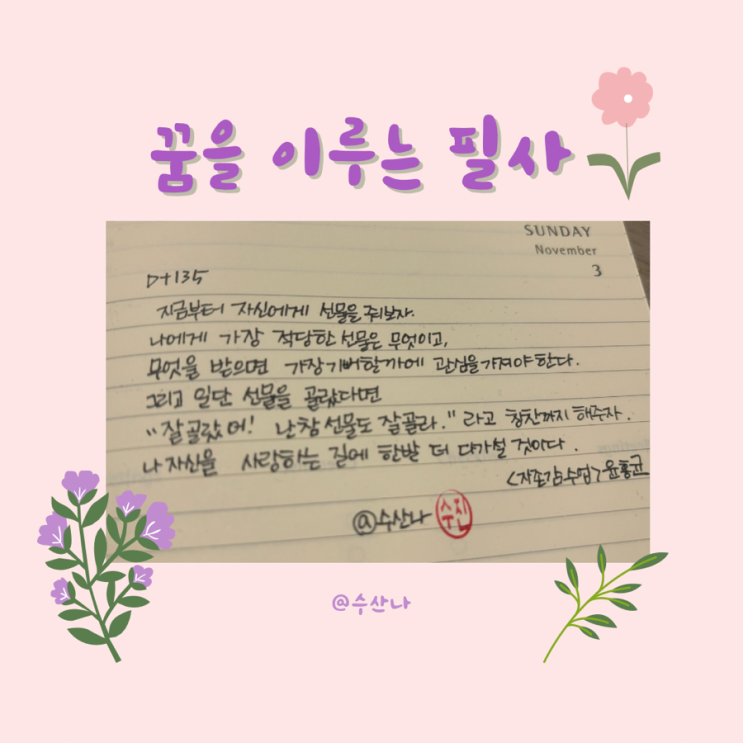 꿈을 이루는 필사
SUNDAY
November
3
D+135
지금부터 자신에게 선물을 주보자.
나에게 가장 적당한 선물은 무엇이고,
무엇을 받으면 가장 기뻐할까에 관심을 가져야 한다.
그리고 일단 선물을 골랐다면
"잘 골랐어! 난 참 선물도 잘 골라." 라고 칭찬까지 해주자.
나 자신을 사랑하는 길에 한발 더 다가설 것이다.
<자존감 수업> 윤홍균
@수산나
수진
@수산나